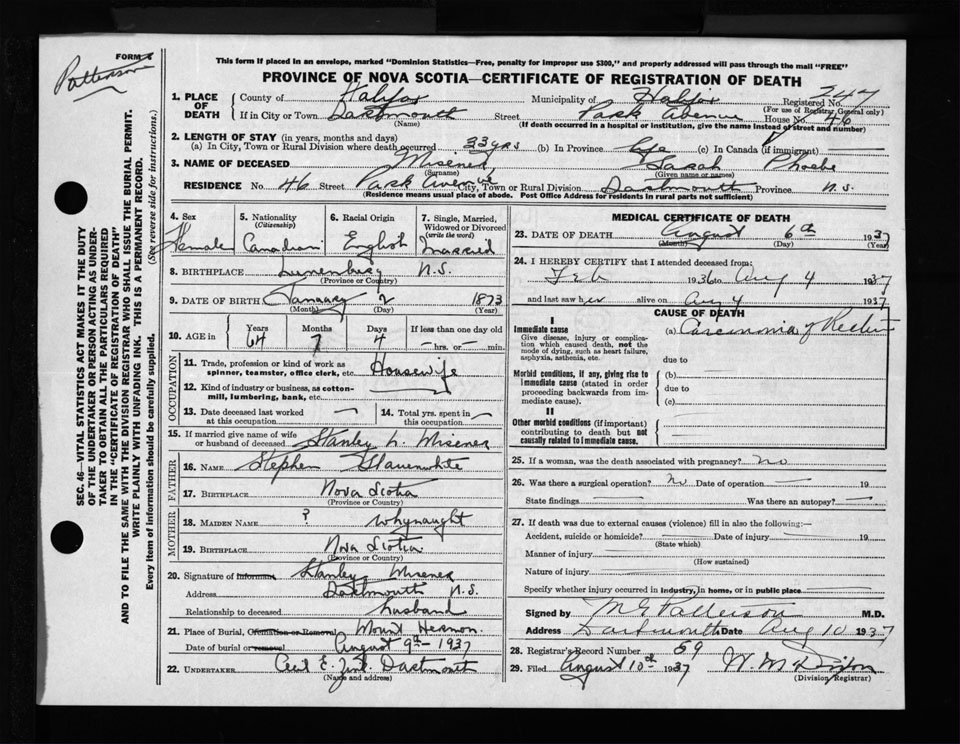 FORM 6
Patterson
This form if placed in an envelope, marked "Dominion Statistics—Free, penalty for improper use $300," and properly addressed will pass through the mail "FREE"
PROVINCE OF NOVA SCOTIA—CERTIFICATE OF REGISTRATION OF DEATH
SEC. 46—VITAL STATISTICS ACT MAKES IT THE DUTY
OF THE UNDERTAKER OR PERSON ACTING AS UNDER-
TAKER TO OBTAIN ALL THE PARTICULARS REQUIRED
IN THE "CERTIFICATE OF REGISTRATION OF DEATH"
AND TO FILE THE SAME WITH THE DIVISION REGISTRAR WHO SHALL ISSUE THE BURIAL PERMIT.
WRITE PLAINLY WITH UNFADING INK. THIS IS A PERMANENT RECORD.
Every item of information should be carefully supplied. (See reverse side for instructions.)
1. PLACE OF DEATH County of Halifax Municipality of Halifax Registered No. 247
(For use of Registrar General only)
If in City or Town Dartmouth Street Park Avenue House No. 46
(Name) (If death occurred in a hospital or institution, give the name instead of street and number)
2. LENGTH OF STAY (in years, months and days)
(a) In City, Town or Rural Division where death occurred 33 yrs (b) In Province Life (c) In Canada (if immigrant) —
3. NAME OF DECEASED Misener Sarah Phoebe
(Surname) (Given name or names)
RESIDENCE No. 46 Street Park Avenue City, Town or Rural Division Dartmouth Province N.S.
(Residence means usual place of abode. Post Office Address for residents in rural parts not sufficient)
4. Sex Female
5. Nationality (Citizenship) Canadian
6. Racial Origin English
7. Single, Married, Widowed or Divorced (write the word) Married
8. BIRTHPLACE Lunenburg N.S.
(Province or Country)
9. DATE OF BIRTH January 2 1873
(Month) (Day) (Year)
10. AGE in Years 64 Months 7 Days 4 If less than one day old — hrs. or — min.
OCCUPATION
11. Trade, profession or kind of work as spinner, teamster, office clerk, etc. Housewife
12. Kind of industry or business, as cotton-mill, lumbering, bank, etc.
13. Date deceased last worked at this occupation —
14. Total yrs. spent in this occupation —
15. If married give name of wife or husband of deceased Stanley N. Misener
FATHER
16. NAME Stephen Slauenwhite
17. BIRTHPLACE Nova Scotia
(Province or Country)
MOTHER
18. MAIDEN NAME ? Whynaught
19. BIRTHPLACE Nova Scotia
(Province or Country)
20. Signature of informant Stanley Misener
Address Dartmouth N.S.
Relationship to deceased husband
21. Place of Burial, Cremation or Removal Mount Hermon
Date of burial or removal August 9th - 1937
22. UNDERTAKER Cecil E. Zink Dartmouth
(Name and address)
MEDICAL CERTIFICATE OF DEATH
23. DATE OF DEATH August 6th 1937
(Month) (Day) (Year)
24. I HEREBY CERTIFY that I attended deceased from:
Feb 1936 to Aug 4 1937
and last saw her alive on Aug 4 1937
CAUSE OF DEATH
I
Immediate cause
Give disease, injury or complication which caused death, not the mode of dying, such as heart failure, asphyxia, asthenia, etc.
(a) Carcinoma of Rectum
due to
Morbid conditions, if any, giving rise to immediate cause (stated in order proceeding backwards from immediate cause).
(b) —
due to
(c) —
II
Other morbid conditions (if important) contributing to death but not causally related to immediate cause.
25. If a woman, was the death associated with pregnancy? no
26. Was there a surgical operation? No Date of operation — 19
State findings — Was there an autopsy? —
27. If death was due to external causes (violence) fill in also the following:—
Accident, suicide or homicide? — Date of injury — 19
(State which)
Manner of injury —
(How sustained)
Nature of injury —
Specify whether injury occurred in industry, in home, or in public place
Signed by M G Patterson M.D.
Address Dartmouth Date Aug 10 1937
28. Registrar's Record Number 59
29. Filed August 10th 1937
(Division Registrar)